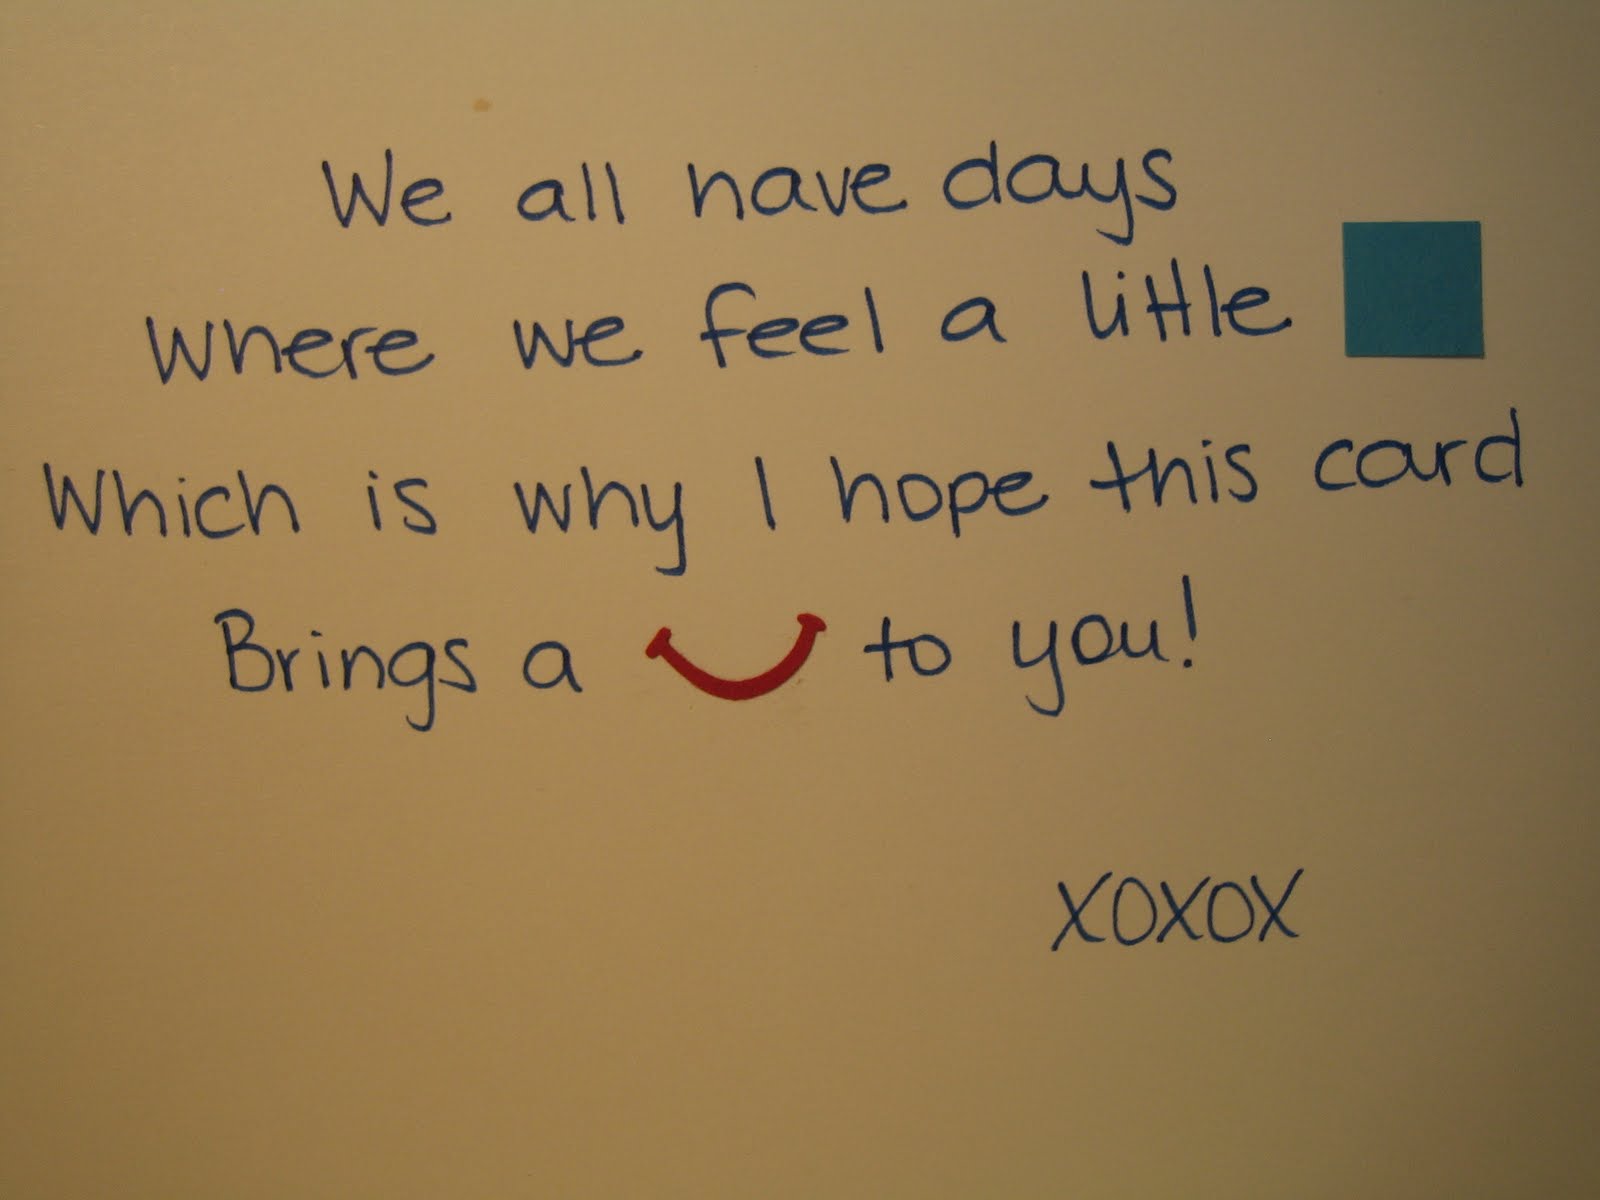 We all have days
where we feel a little
Which is why I hope this card
Brings a to you!
XOXOX